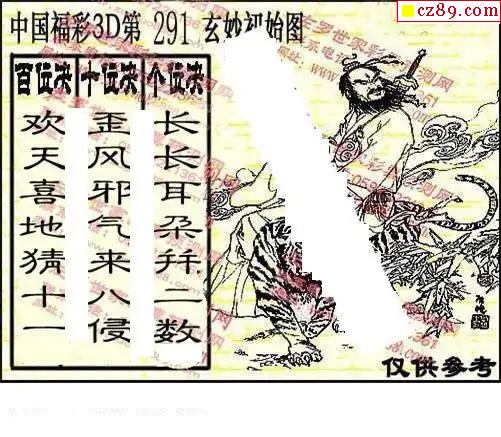 cz89.com
中国福彩3D第 291 玄妙初始图
百位决 十位决 个位决
欢天喜地猜十一
歪风邪气来八侵
长长耳朵并一数
仅供参考